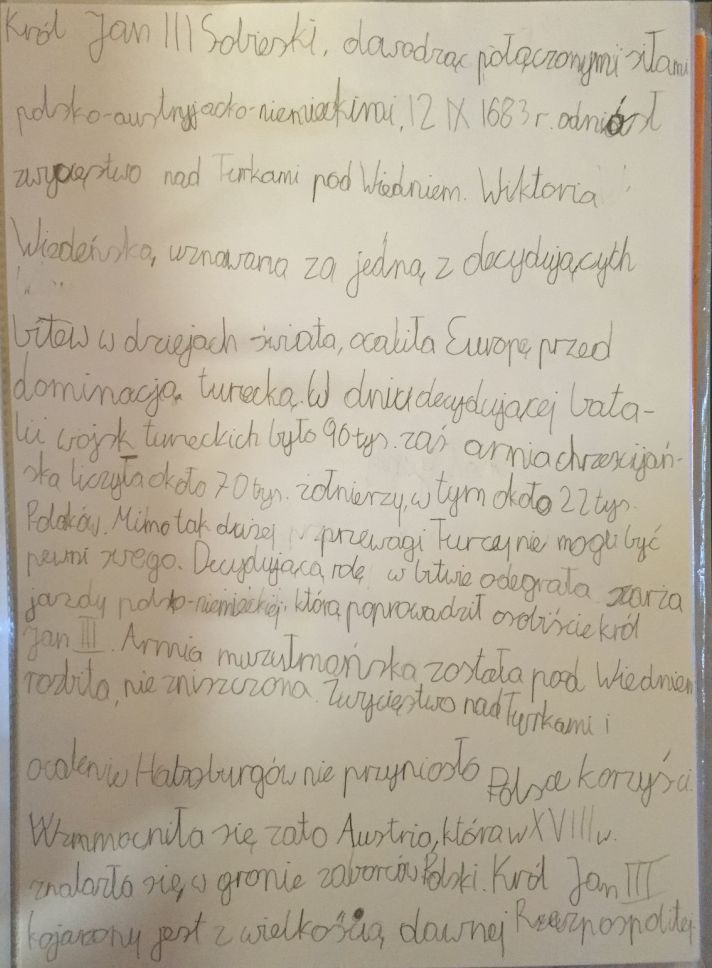 Król Jan III Sobieski, dowodząc połączonymi siłami
polsko-austryjacko-niemieckimi, 12 IX 1683 r. odniósł
zwycięstwo nad Turkami pod Wiedniem. Wiktoria
Wiedeńska, uznawana za jedną z decydujących
bitew w dziejach świata, ocaliła Europę przed
dominacją turecką. W dniu decydującej bata-
lii wojsk tureckich było 90 tys. zaś armia chrześcijań-
ska liczyła około 70 tys. żołnierzy, w tym około 22 tys.
Polaków. Mimo tak dużej przewagi Turcy nie mogli być
pewni swego. Decydującą rolę w bitwie odegrała szarża
jazdy polsko-niemieckiej, którą poprowadził osobiście król
Jan III. Armia muzułmańska została pod Wiedniem
rozbita, nie zniszczona. Zwycięstwo nad Turkami i
ocalenie Habsburgów nie przyniosło Polsce korzyści.
Wzmmocniła się zato Austria, która w XVIII w.
znalazła się w gronie zaborców Polski. Król Jan III
kojarzony jest z wielkością dawnej Rzeczpospolitej